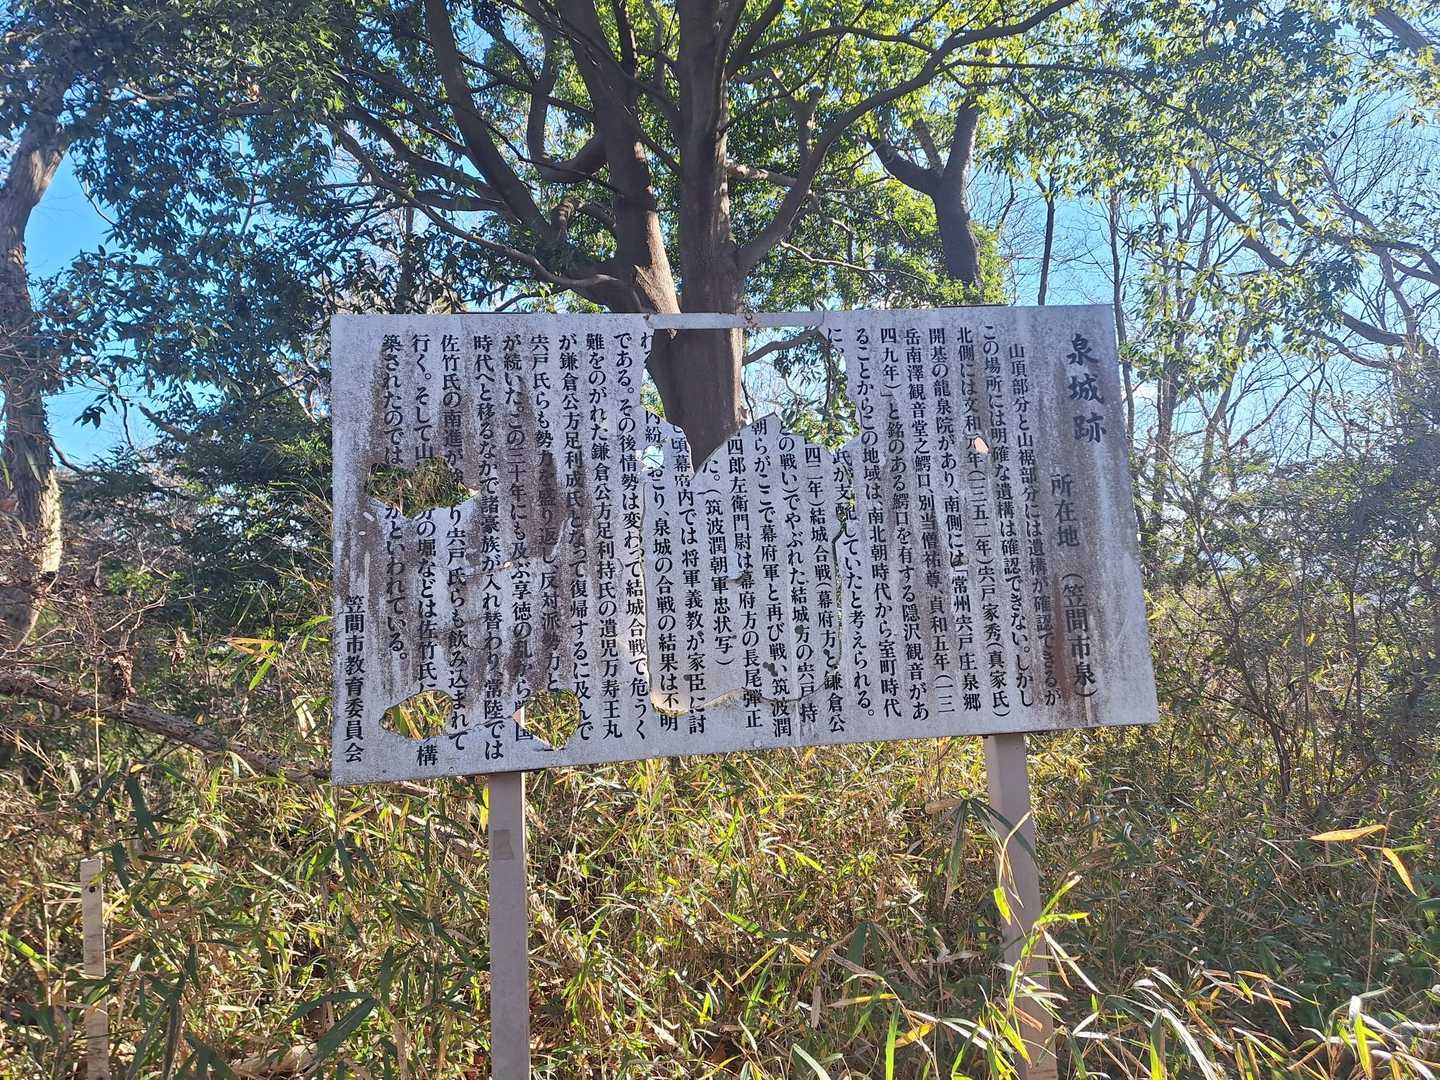 泉城跡
所在地 （笠間市泉）
山頂部分と山裾部分には遺構が確認できるが
この場所には明確な遺構は確認できない。しかし
北側には文和 年（一三五二年）宍戸家秀（真家氏）
開基の龍泉院があり、南側には「常州宍戸庄泉郷
岳南澤観音堂之鰐口 別当僧祐尊、貞和五年（一三
四九年）」と銘のある鰐口を有する隠沢観音があ
ることからこの地域は、南北朝時代から室町時代
に、 氏が支配していたと考えられる。
四二年）結城合戦（幕府方と鎌倉公
の戦い）でやぶれた結城方の宍戸持
朝らがここで幕府軍と再び戦い、筑波潤
四郎左衛門尉は幕府方の長尾弾正
た。（筑波潤朝軍忠状写）
頃幕府内では将軍義教が家臣に討
内紛 おこり、泉城の合戦の結果は不明
である。その後情勢は変わって結城合戦で危うく
難をのがれた鎌倉公方足利持氏の遺児万寿王丸
が鎌倉公方足利成氏となって復帰するに及んで
宍戸氏らも勢力 盛り返し、反対派勢力と
が続いた。この三十年にも及ぶ享徳の乱から 国
時代へと移るなかで諸豪族が入れ替わり、常陸では
佐竹氏の南進が り宍戸氏らも飲み込まれて
行く。そして山 分の堀などは佐竹氏 構
築されたのでは かといわれている。
笠間市教育委員会